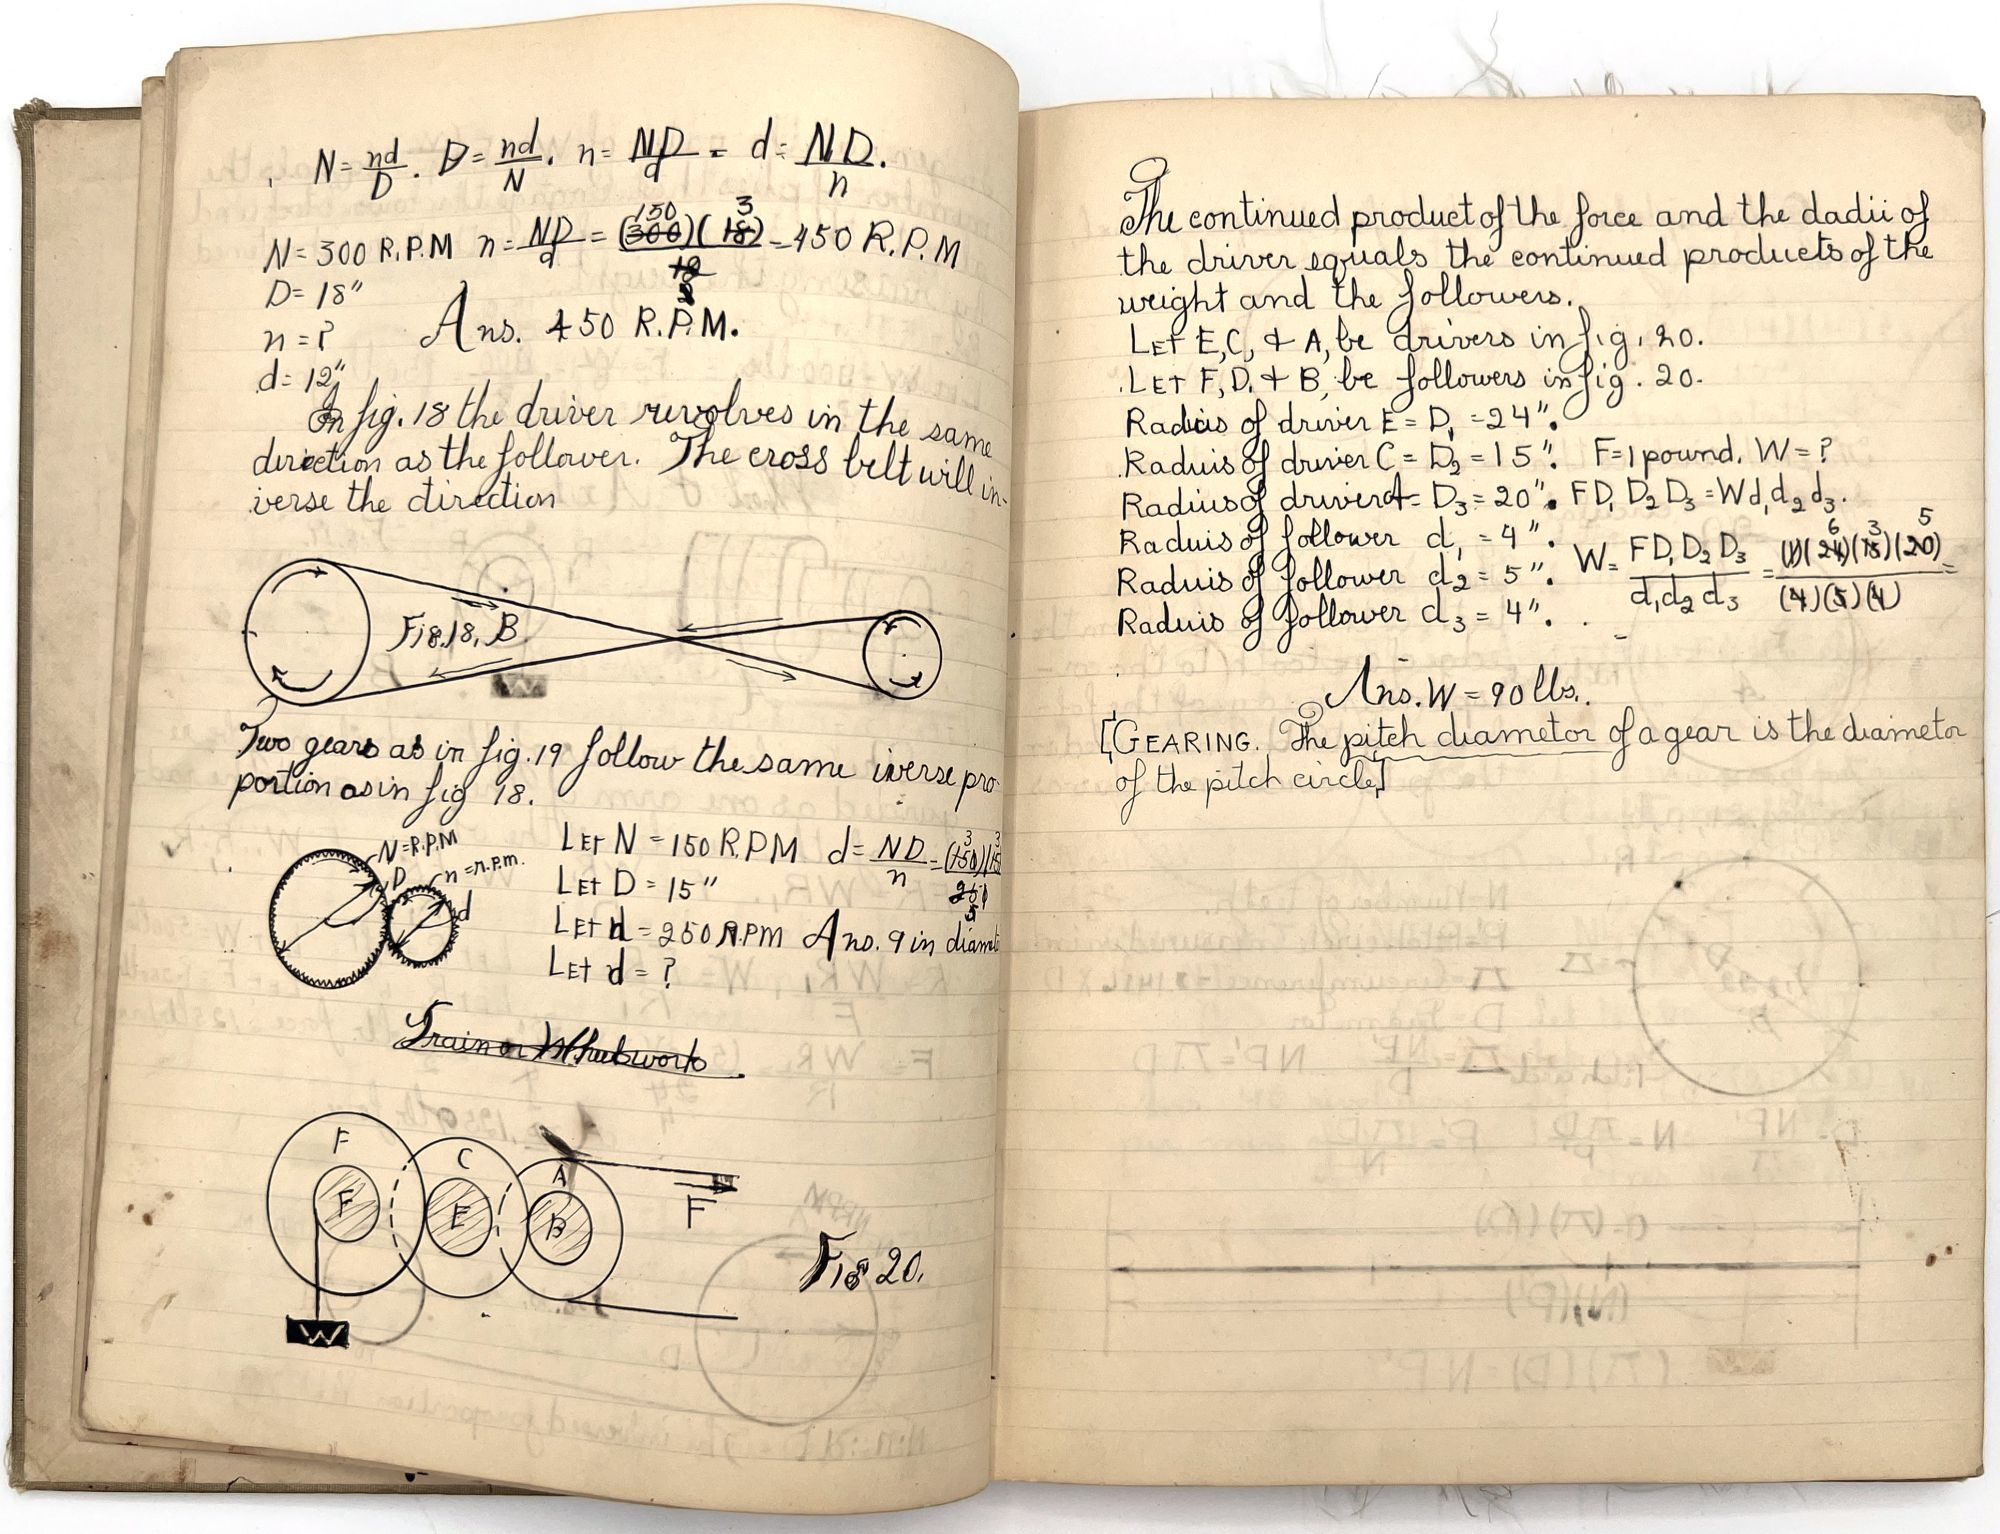 N = nd/D. D = nd/N. n = ND/d - d = ND/n.
N = 300 R.P.M n = ND/d = (300)(18)/12 = 450 R.P.M
150 3
D = 18"
n = ?
Ans. 450 R.P.M.
d = 12"
In fig. 18 the driver revolves in the same
direction as the follower. The cross belt will in-
verse the direction
Fig. 18, B
Two gears as in fig. 19 follow the same inverse pro-
portion as in fig 18.
N = R.P.M
D
n = r.p.m.
d
LET N = 150 R.P.M d = ND/n = (150)(15
3 3
LET D = 15"
250
5
LET n = 250 R.P.M Ans. 9 in diamet
LET d = ?
Train or Wheelwork
F
C
A
F
E
B
F
Fig 20.
W
The continued product of the force and the dadii of
the driver equals the continued products of the
weight and the followers.
LET E, C, & A, be drivers in fig. 20.
LET F, D, & B, be followers in fig. 20.
Radius of driver E = D1 = 24".
Raduis of driver C = D2 = 15". F = 1 pound. W = ?
Radius of driver A = D3 = 20". FD1 D2 D3 = Wd1 d2 d3.
Raduis of follower d1 = 4".
6 3 5
W = FD1 D2 D3/d1 d2 d3 = (1)(24)(15)(20)/(4)(5)(4) =
Raduis of follower d2 = 5".
Raduis of follower d3 = 4".
Ans. W = 90 lbs.
[GEARING. The pitch diametor of a gear is the diametor
of the pitch circle]